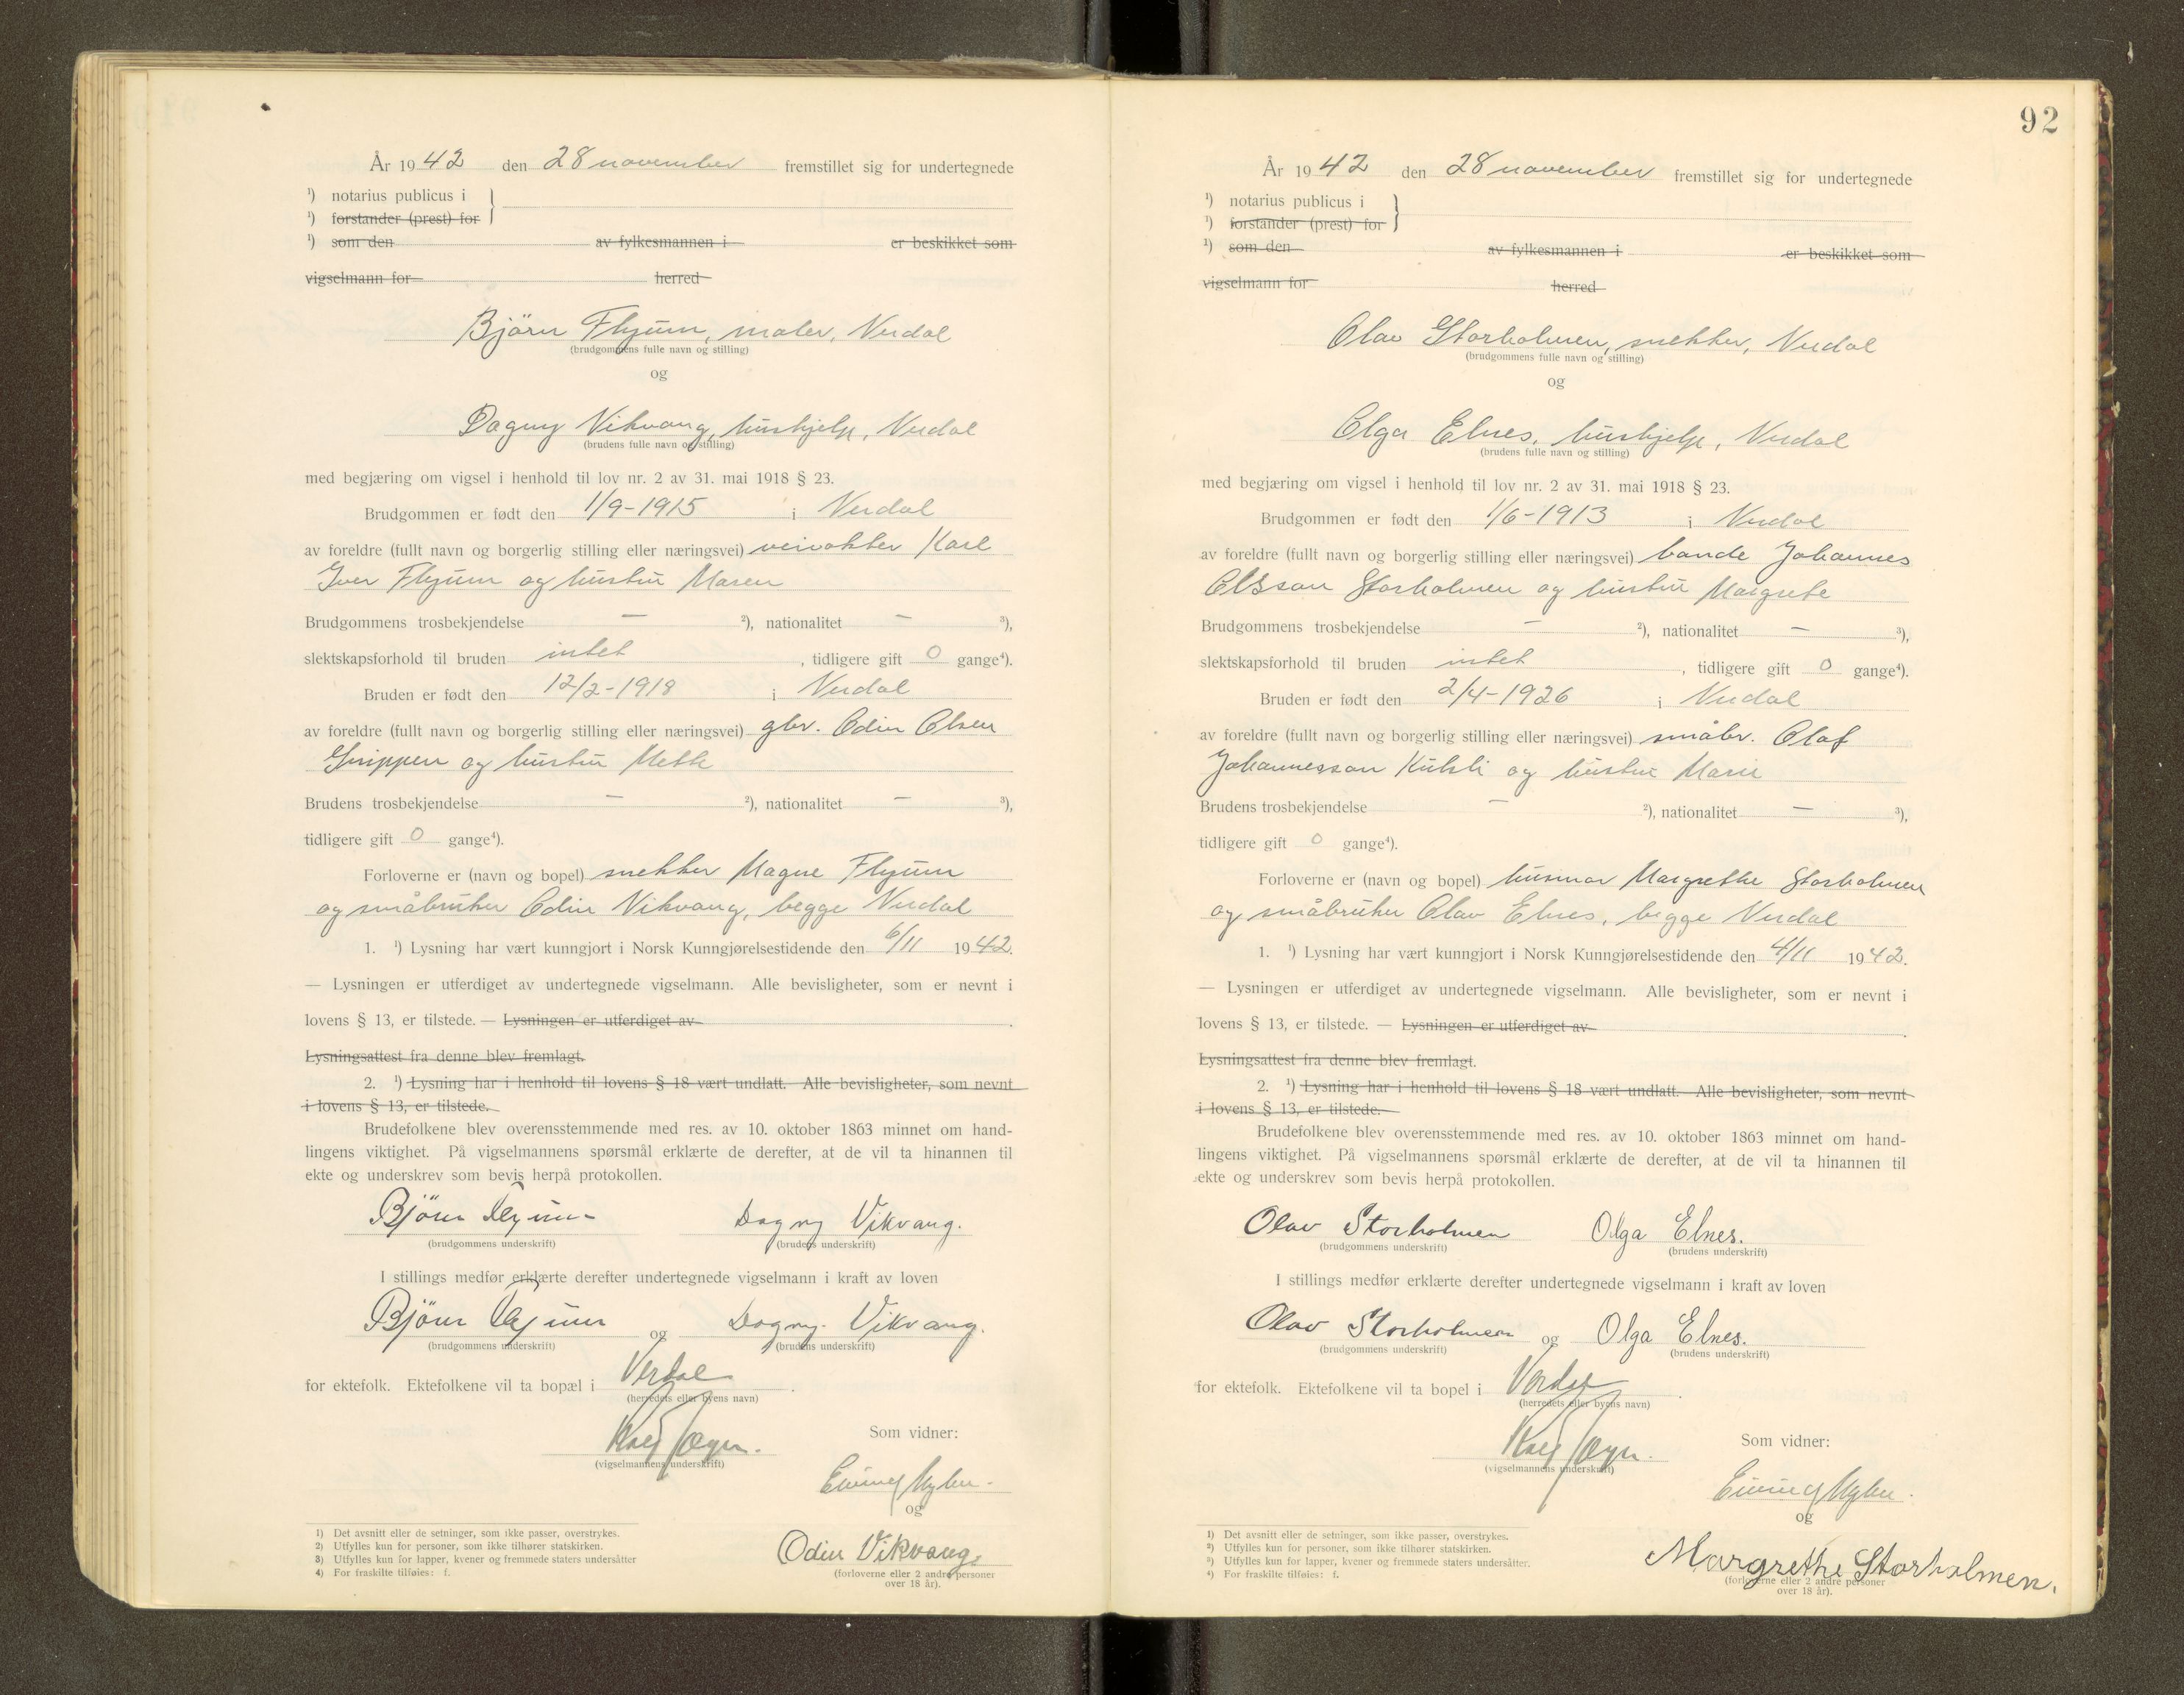 År 1942 den 28 november fremstillet sig for undertegnede
¹) notarius publicus i
¹) forstander (prest) for
¹) som den av fylkesmannen i er beskikket som
vigselmann for herred
Bjørn Flyum, maler, Verdal
(brudgommens fulle navn og stilling)
og
Dagny Vikvang, hushjelp, Verdal
(brudens fulle navn og stilling)
med begjæring om vigsel i henhold til lov nr. 2 av 31. mai 1918 § 23.
Brudgommen er født den 1/9-1915 i Verdal
av foreldre (fullt navn og borgerlig stilling eller næringsvei) veivokter Karl
Iver Flyum og hustru Maren
Brudgommens trosbekjendelse — ²), nationalitet — ³),
slektskapsforhold til bruden intet, tidligere gift 0 gange⁴).
Bruden er født den 12/2-1918 i Verdal
av foreldre (fullt navn og borgerlig stilling eller næringsvei) gbr. Odin Olsen
og hustru Mette
Brudens trosbekjendelse — ²), nationalitet — ³),
tidligere gift 0 gange⁴).
Forloverne er (navn og bopel) snekker Magne Flyum
og småbruker Odin Vikvang, begge Verdal
1. ¹) Lysning har vært kunngjort i Norsk Kunngjørelsestidende den 6/11 1942.
— Lysningen er utferdiget av undertegnede vigselmann. Alle bevisligheter, som er nevnt i
lovens § 13, er tilstede. — Lysningen er utferdiget av .
Lysningsattest fra denne blev fremlagt.
2. ¹) Lysning har i henhold til lovens § 18 vært undlatt. Alle bevisligheter, som nevnt
i lovens § 13, er tilstede.
Brudefolkene blev overensstemmende med res. av 10. oktober 1863 minnet om hand-
lingens viktighet. På vigselmannens spørsmål erklærte de derefter, at de vil ta hinannen til
ekte og underskrev som bevis herpå protokollen.
Bjørn Flyum Dagny Vikvang.
(brudgommens underskrift) (brudens underskrift)
I stillings medfør erklærte derefter undertegnede vigselmann i kraft av loven
Bjørn Flyum og Dagny Vikvang.
(brudgommens underskrift) (brudens underskrift)
for ektefolk. Ektefolkene vil ta bopæl i Verdal .
(herredets eller byens navn)
Som vidner:
(vigselmannens underskrift)
og
Odin Vikvang.
(forloverne eller 2 andre personer
over 18 år).
1) Det avsnitt eller de setninger, som ikke passer, overstrykes.
2) Utfylles kun for personer, som ikke tilhører statskirken.
3) Utfylles kun for lapper, kvener og fremmede staters undersåtter
4) For fraskilte tilføies: f.
92
År 1942 den 28 november fremstillet sig for undertegnede
¹) notarius publicus i
¹) forstander (prest) for
¹) som den av fylkesmannen i er beskikket som
vigselmann for herred
Olav Storholmen, snekker, Verdal
(brudgommens fulle navn og stilling)
og
Olga Elnes, hushjelp, Verdal
(brudens fulle navn og stilling)
med begjæring om vigsel i henhold til lov nr. 2 av 31. mai 1918 § 23.
Brudgommen er født den 1/6-1913 i Verdal
av foreldre (fullt navn og borgerlig stilling eller næringsvei) bonde Johannes
Olsson Storholmen og hustru Margrete
Brudgommens trosbekjendelse — ²), nationalitet — ³),
slektskapsforhold til bruden intet, tidligere gift 0 gange⁴).
Bruden er født den 2/4-1926 i Verdal
av foreldre (fullt navn og borgerlig stilling eller næringsvei) småbr. Olaf
Johannesson og hustru Marie
Brudens trosbekjendelse — ²), nationalitet — ³),
tidligere gift 0 gange⁴).
Forloverne er (navn og bopel) husmor Margrethe Storholmen
og småbruker Olav Elnes, begge Verdal
1. ¹) Lysning har vært kunngjort i Norsk Kunngjørelsestidende den 4/11 1942.
— Lysningen er utferdiget av undertegnede vigselmann. Alle bevisligheter, som er nevnt i
lovens § 13, er tilstede. — Lysningen er utferdiget av .
Lysningsattest fra denne blev fremlagt.
2. ¹) Lysning har i henhold til lovens § 18 vært undlatt. Alle bevisligheter, som nevnt
i lovens § 13, er tilstede.
Brudefolkene blev overensstemmende med res. av 10. oktober 1863 minnet om hand-
lingens viktighet. På vigselmannens spørsmål erklærte de derefter, at de vil ta hinannen til
ekte og underskrev som bevis herpå protokollen.
Olav Storholmen Olga Elnes.
(brudgommens underskrift) (brudens underskrift)
I stillings medfør erklærte derefter undertegnede vigselmann i kraft av loven
Olav Storholmen og Olga Elnes.
(brudgommens underskrift) (brudens underskrift)
for ektefolk. Ektefolkene vil ta bopel i Verdal .
(herredets eller byens navn)
Som vidner:
(vigselmannens underskrift)
og
Margrethe Storholmen.
(forloverne eller 2 andre personer
over 18 år).
1) Det avsnitt eller de setninger, som ikke passer, overstrykes.
2) Utfylles kun for personer, som ikke tilhører statskirken.
3) Utfylles kun for lapper, kvener og fremmede staters undersåtter.
4) For fraskilte tilføies: f.